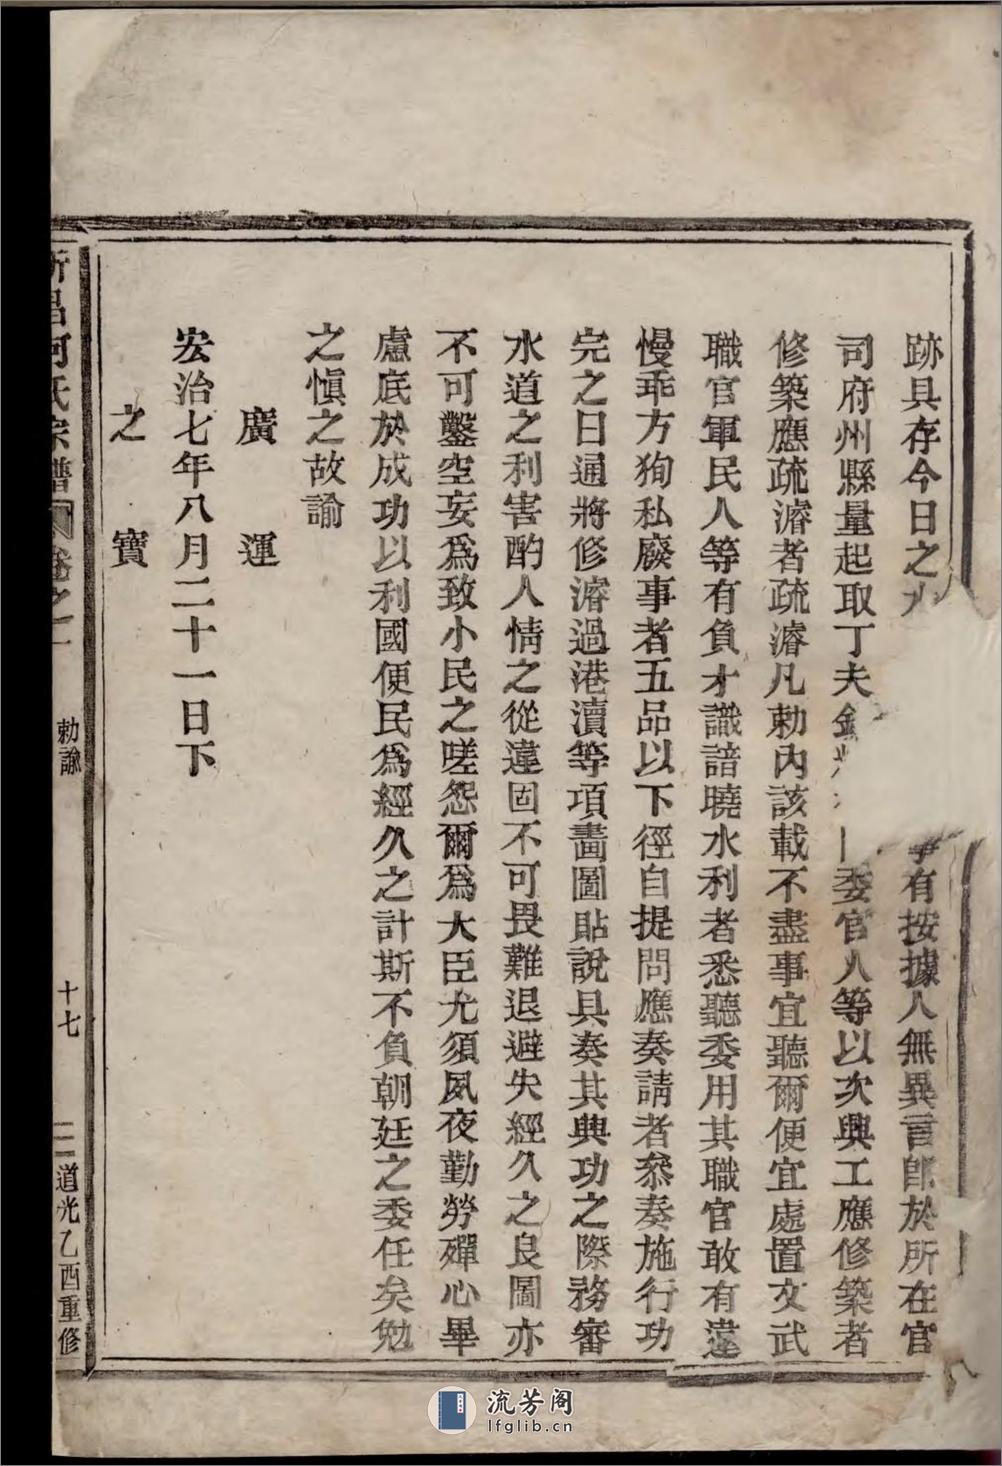 跡具存今日之
有按據人無異言郎於所在官
司府州縣量起取丁夫
委官人等以次興工應修築者
修築應疏濬者疏濬凡勅內該載不盡事宜聽爾便宜處置文武
職官軍民人等有負才識諳曉水利者悉聽委用其職官敢有違
慢乖方狥私廢事者五品以下徑自提問應奏請者叅奏施行功
完之日通將修濬過港瀆等項畵圖貼說具奏其興功之際務審
水道之利害酌人情之從違固不可畏難退避失經久之良圖亦
不可鑿空妄爲致小民之嗟怨爾爲大臣尤須夙夜勤勞殫心畢
慮底於成功以利國便民爲經久之計斯不負朝廷之委任矣勉
之慎之故諭
廣運
宏治七年八月二十一日下
之寶
昌何氏宗譜
卷之一
勅諭
十七
道光乙酉重修
流芳阁
lfglib.cn